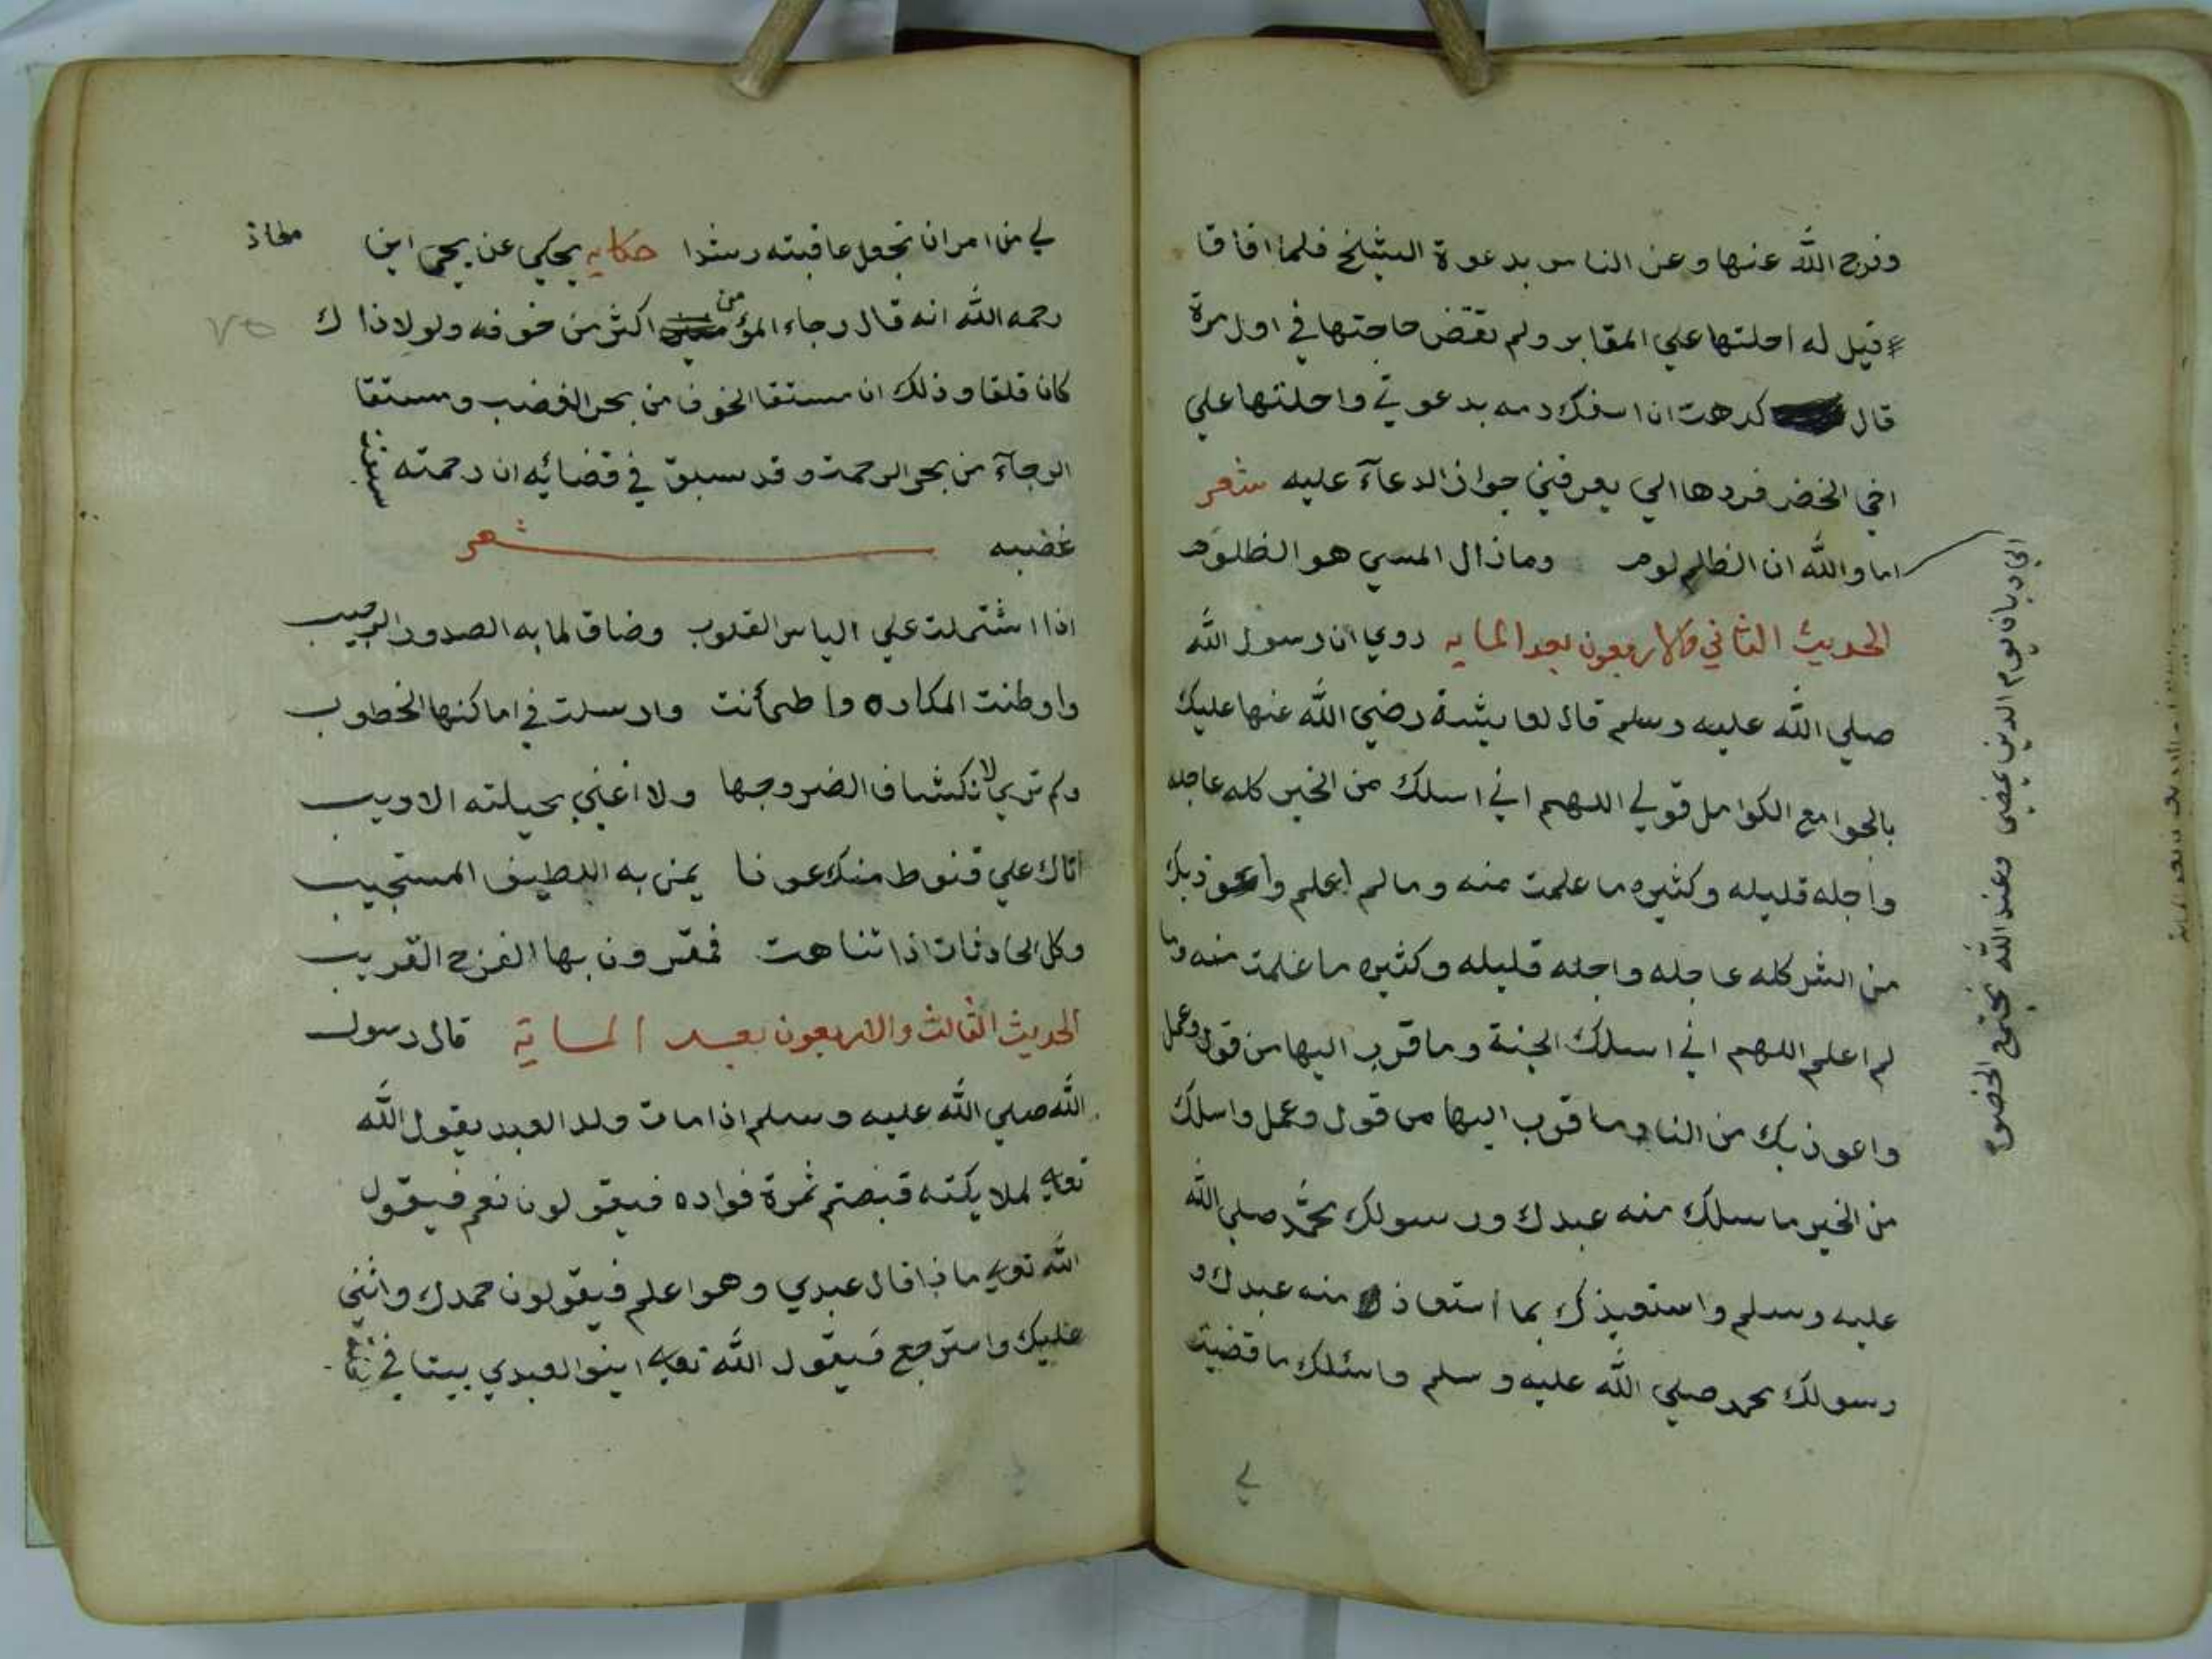 وفرج الله عنها وعن الناس بدعوة الشيخ فلما افاقا
قيل له احلتها علي المقابر ولم تقض حاجتها في اول مرة
قال كرهت ان اسفك دمه بدعوتي واحلتها علي
اخي الخضر فردها الي يعرفني جواز الدعآء عليه شعر
اما والله ان الظلم لوم وما زال المسي هو الظلوم
الي ديان يوم الدين نمضي وعند الله تجتمع الخصوم
الحديث الثاني والاربعون بعد المايه روي ان رسول الله
صلي الله عليه وسلم قال لعايشة رضي الله عنها عليك
بالجوامع الكوامل قولي اللهم اني اسلك من الخير كله عاجله
واجله قليله وكثيره ما علمت منه وما لم اعلم واعوذ بك
من الشر كله عاجله واجله قليله وكثيره ما علمت منه وما
لم اعلم اللهم اني اسلك الجنة وما قرب اليها من قول وعمل
واعوذ بك من النار وما قرب اليها من قول وعمل واسلك
من الخير ما سلك منه عبدك ورسولك محمد صلي الله
عليه وسلم واستعيذك بما استعاذ منه عبدك و
رسولك محمد صلي الله عليه وسلم واسئلك ما قضيت
لي
لي من امر ان تجعل عاقبته رشدا حكايه يحكي عن يحي ابن معاذ
رحمه الله انه قال رجاء المؤمن اكثر من خوفه ولولا ذاك
٧٥
كان قلقا وذلك ان مستقا الخوف من بحر الغضب ومستقا
الرجآء من بحر الرحمة وقد سبق في قضائه ان رحمته سبقت
غضبه شعر
اذا اشتملت علي الياس القلوب وضاق لما به الصدور الرحيب
واوطنت المكاره واطمأنت وارسلت في اماكنها الخطوب
ولم تري لانكشاف الضر وجها ولا اغني بحيلته الاريب
اتاك علي قنوط منك عونا يمن به اللطيف المستجيب
وكل الحادثات اذا تناهت فمقرون بها الفرج القريب
الحديث الثالث والاربعون بعد الماية قال رسول
الله صلي الله عليه وسلم اذا مات ولد العبد يقول الله
تعالي لملايكته قبضتم ثمرة فواده فيقولون نعم فيقول
الله تعالي ماذا قال عبدي وهو اعلم فيقولون حمدك واثني
عليك واسترجع فيقول الله تعالي ابنوا لعبدي بيتا في